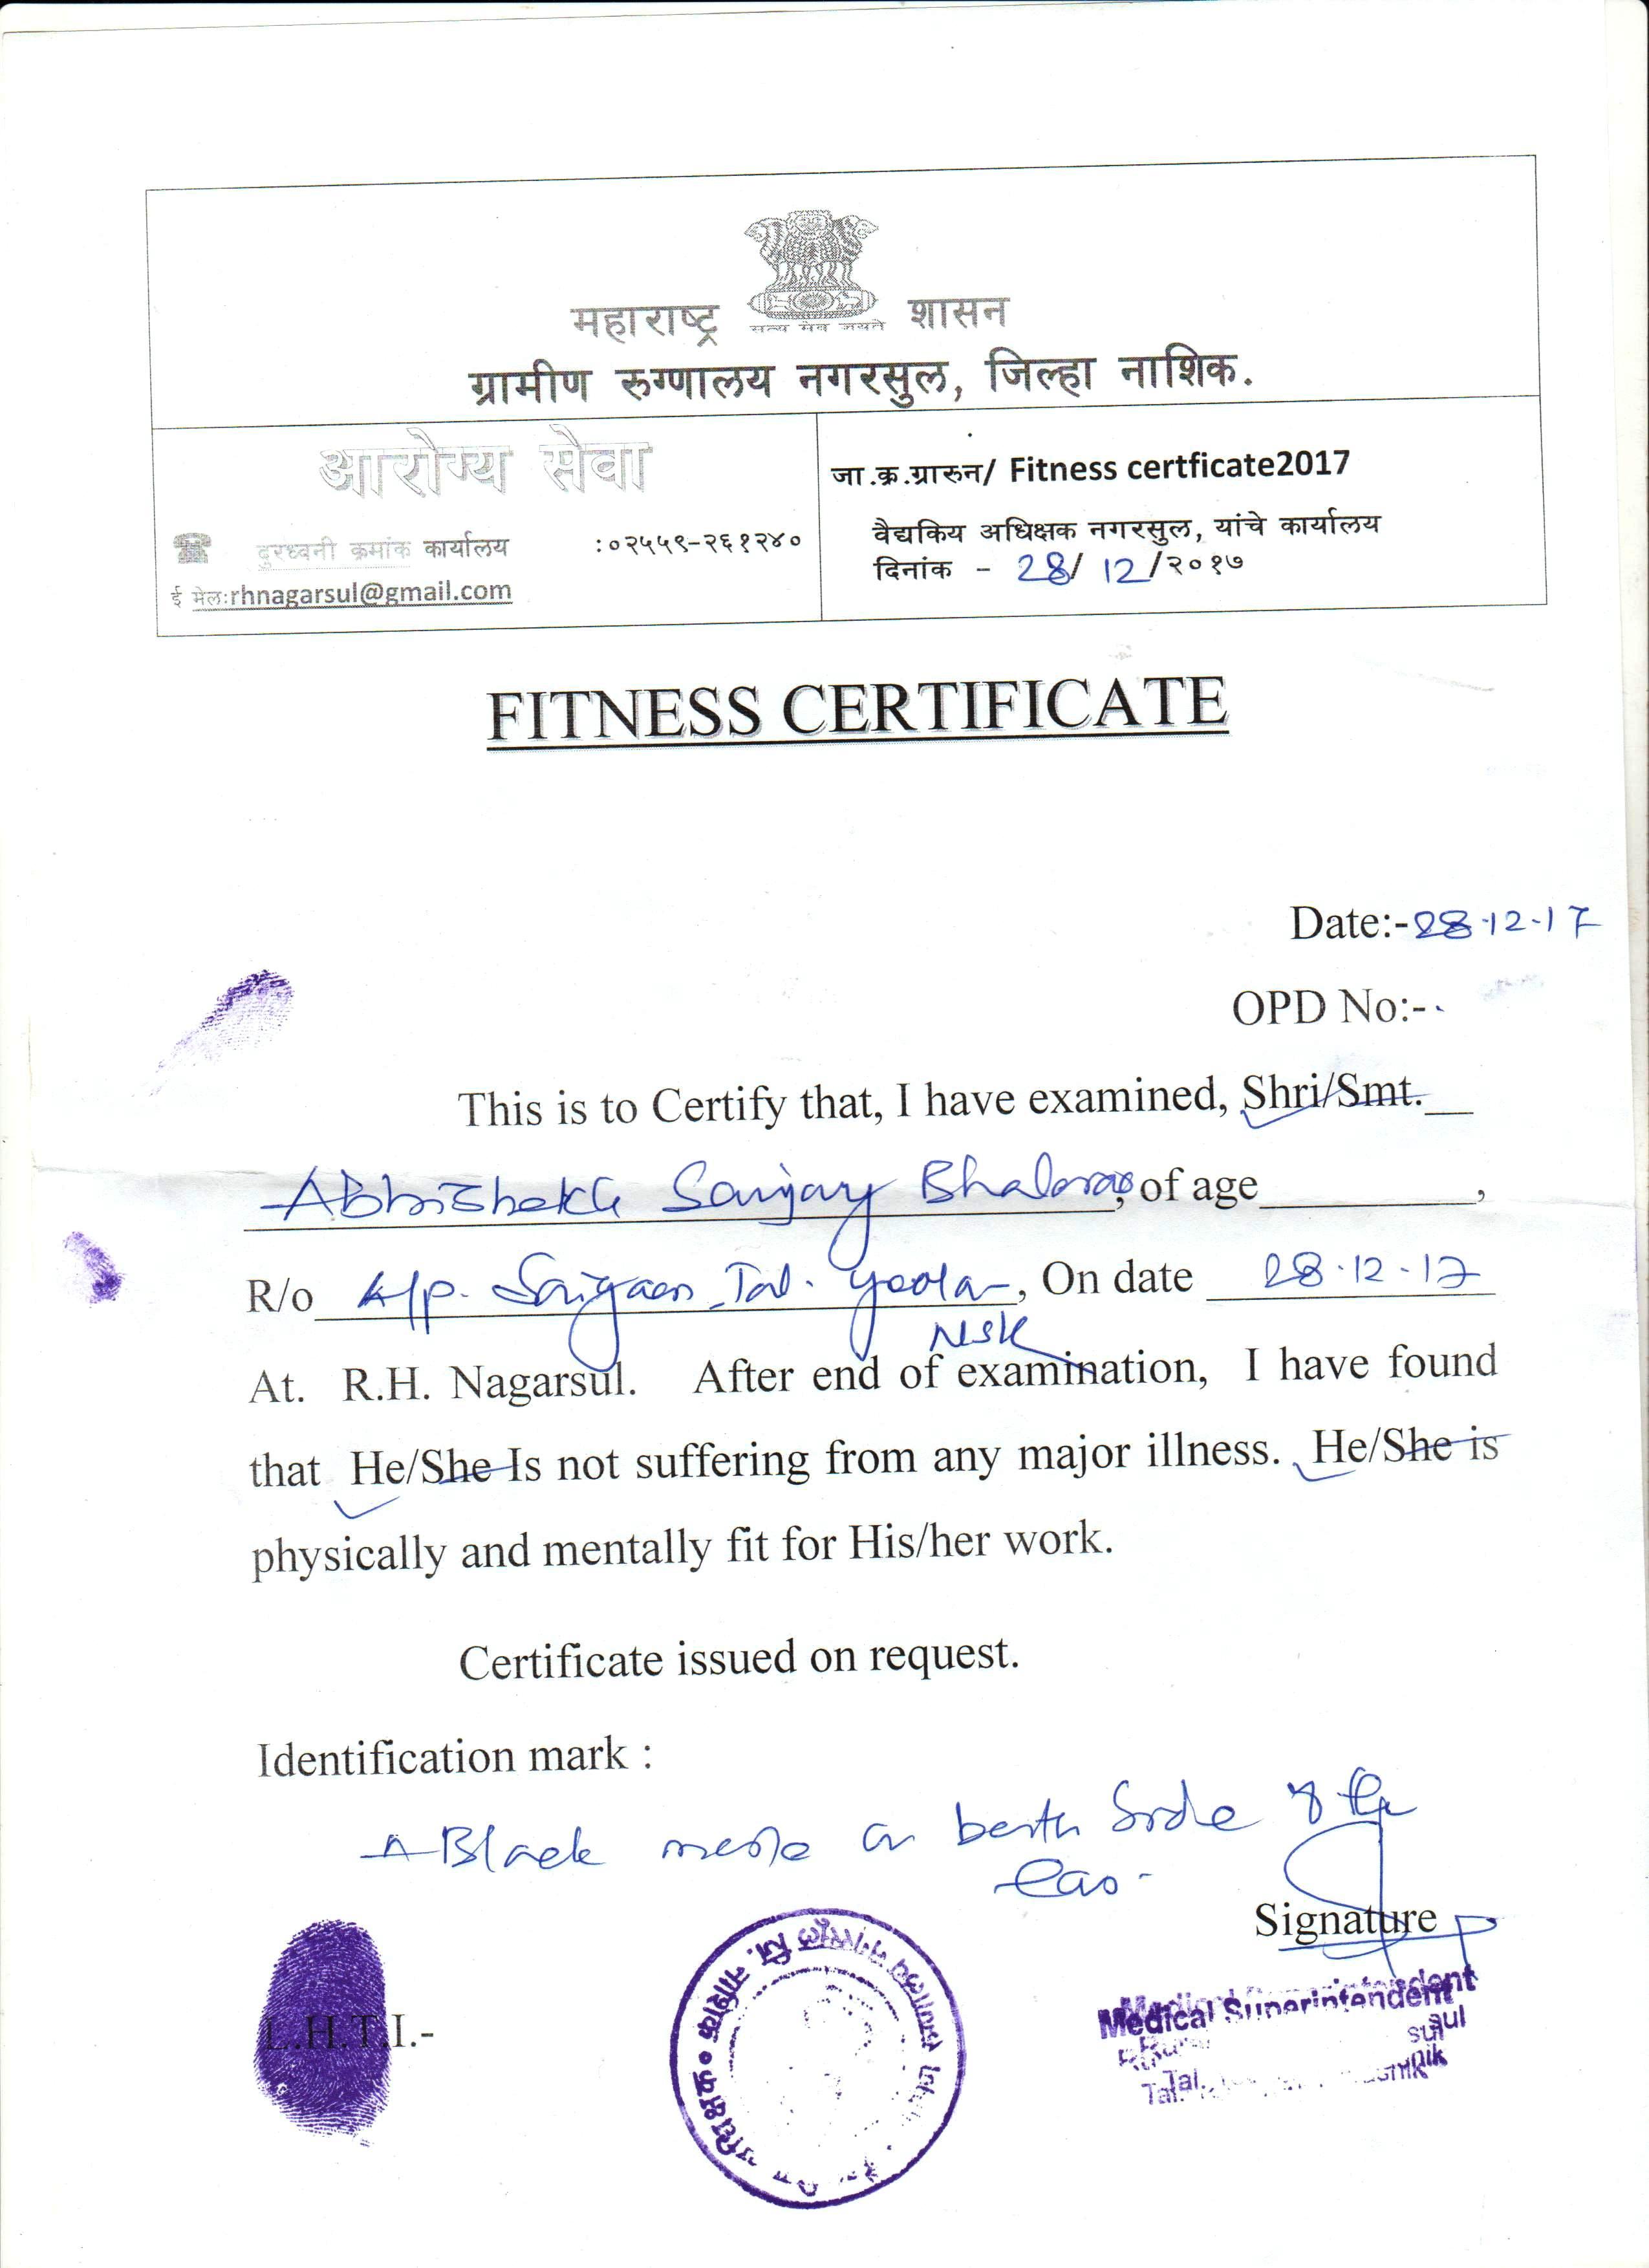 महाराष्ट्र शासन
सत्य मेव जयते
ग्रामीण रुग्णालय नगरसुल, जिल्हा नाशिक.
आरोग्य सेवा
दुरध्वनी क्रमांक कार्यालय :०२५५९-२६१२४०
ई मेल:rhnagarsul@gmail.com
जा.क्र.ग्रारुन/ Fitness certficate2017
वैद्यकिय अधिक्षक नगरसुल, यांचे कार्यालय
दिनांक - 28/ 12/२०१७
FITNESS CERTIFICATE
Date:-28.12.17
OPD No:-
This is to Certify that, I have examined, Shri/Smt.
Abhishekh Sanjay , of age ,
R/o A/p. Saigaon Tal. Yeola, On date 28.12.17
Nsk
At. R.H. Nagarsul. After end of examination, I have found
that He/She Is not suffering from any major illness. He/She is
physically and mentally fit for His/her work.
Certificate issued on request.
Identification mark :
A Black mole on side of the
ear.
Signature
Medical Superintendent
L.H.T.I.-